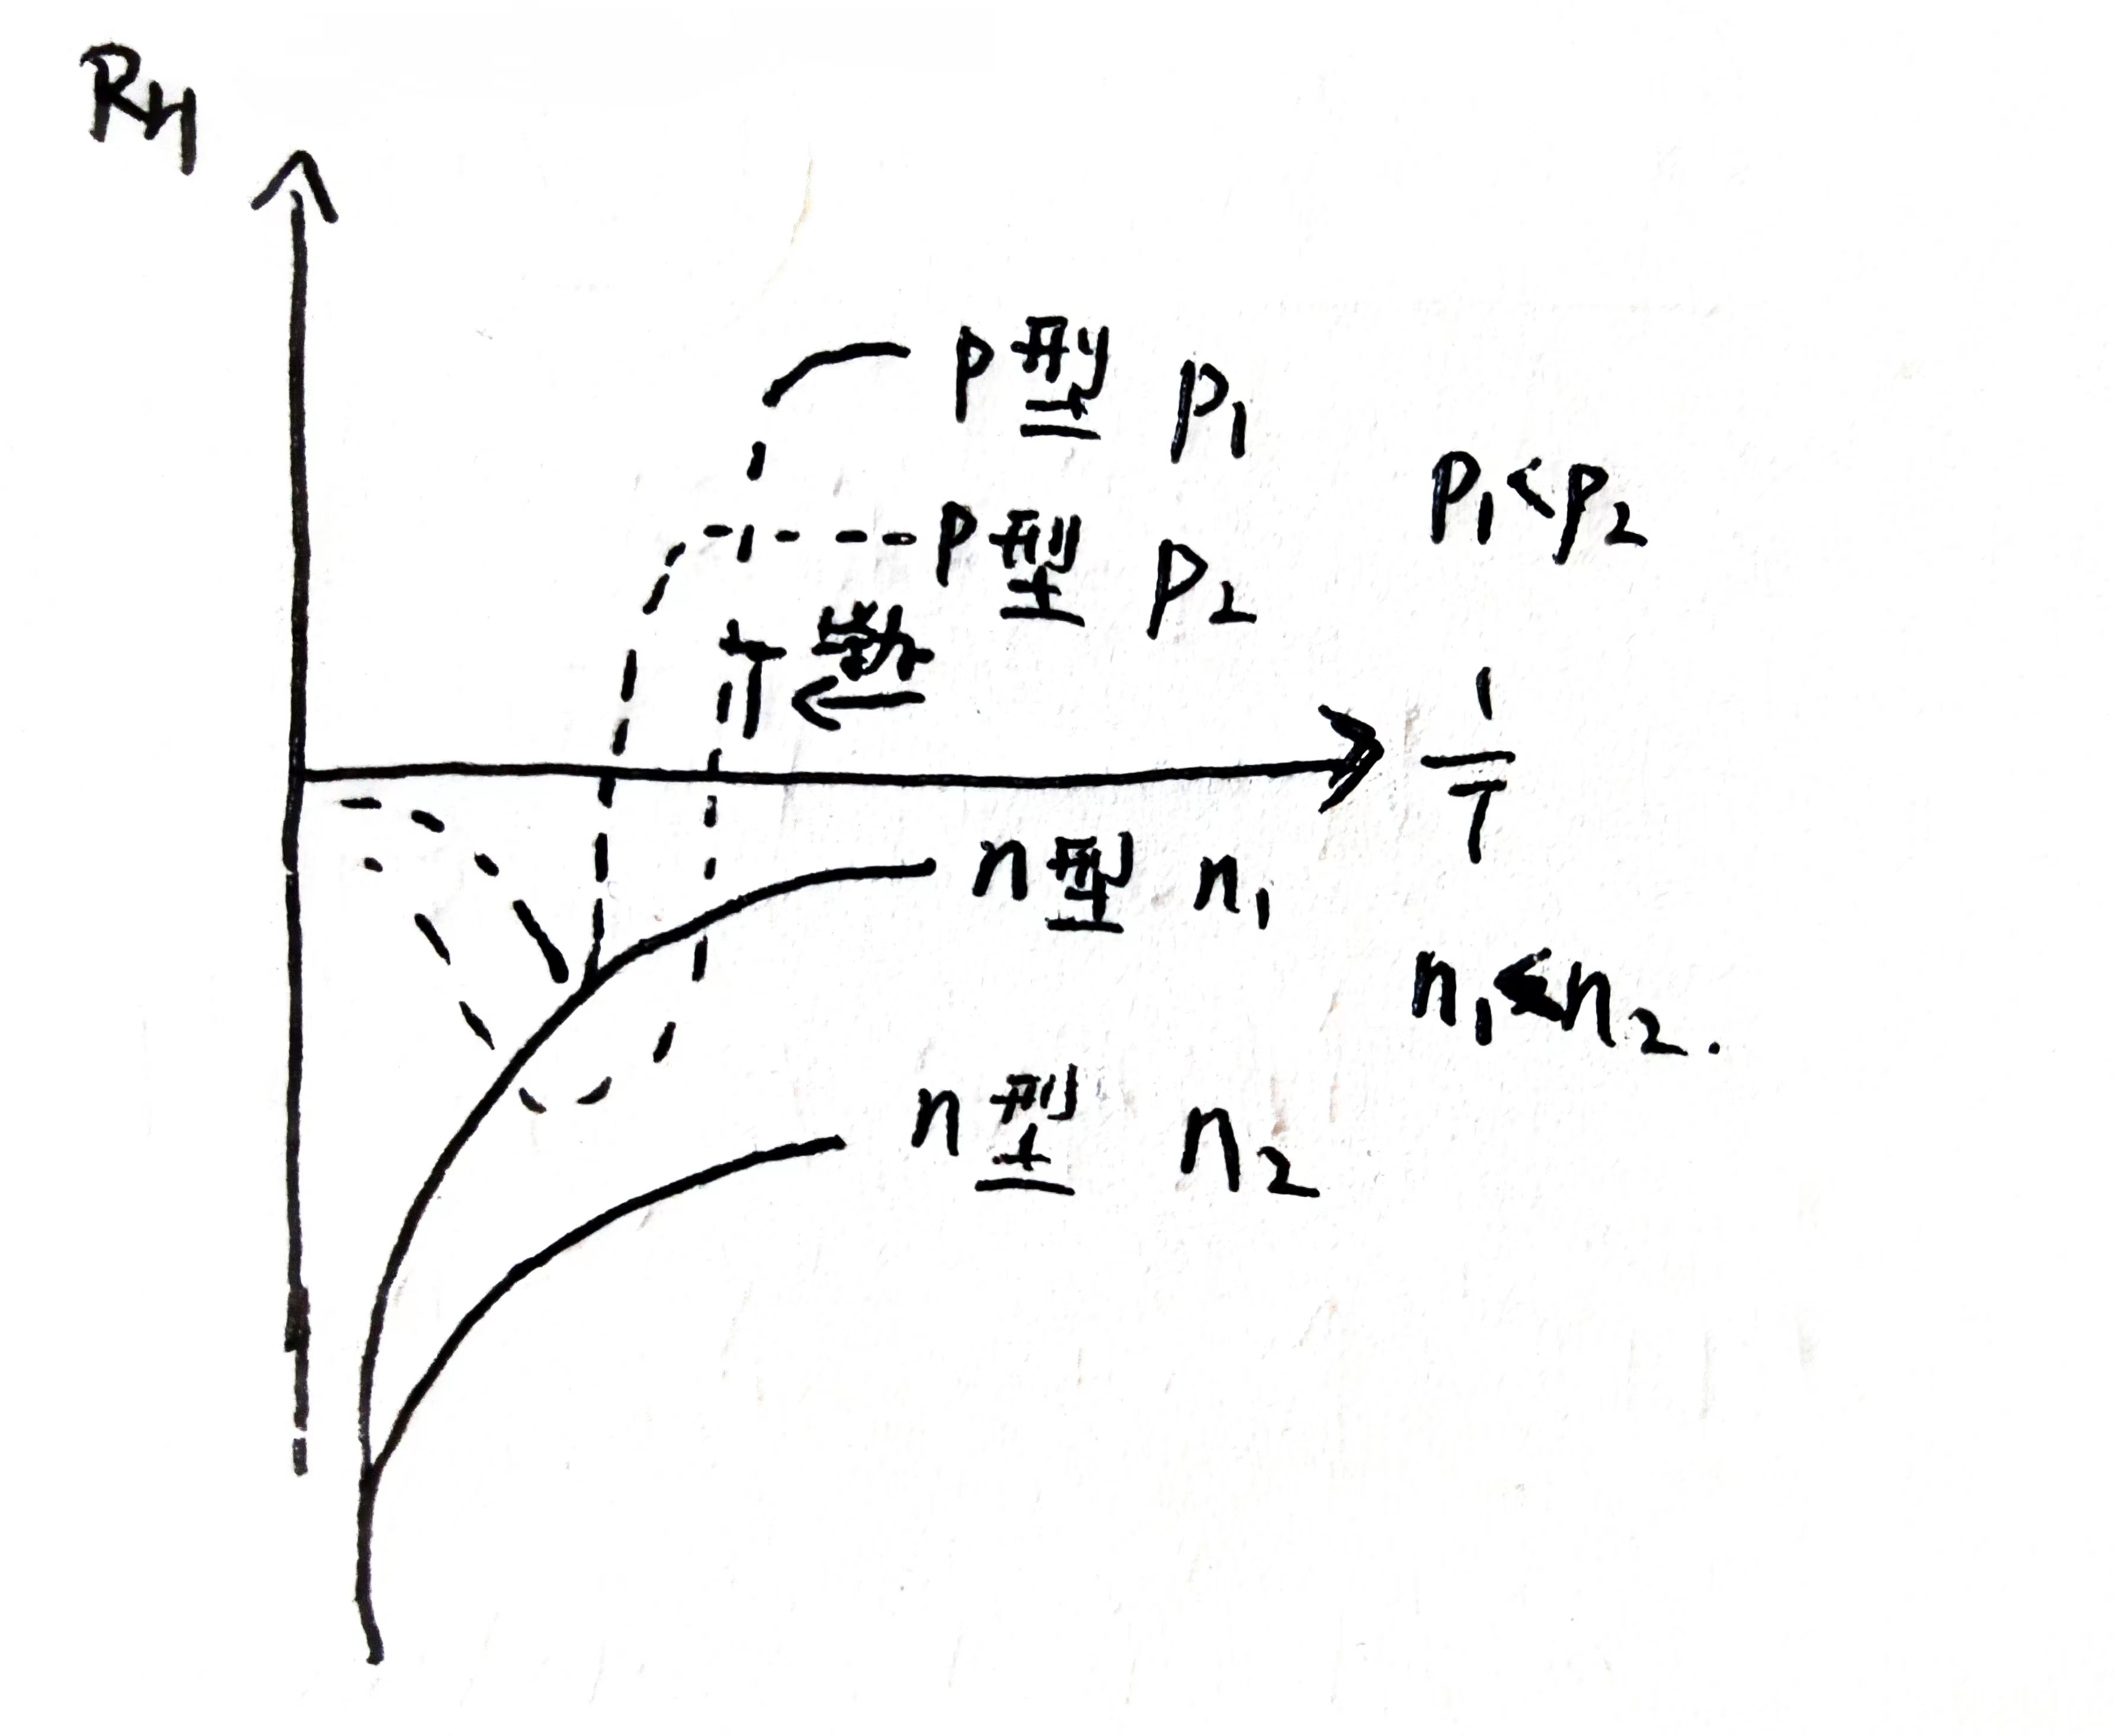 RH
p型 p1
p1<p2
p型 p2
T
1/T
n型 n1
n1<n2.
n型 n2